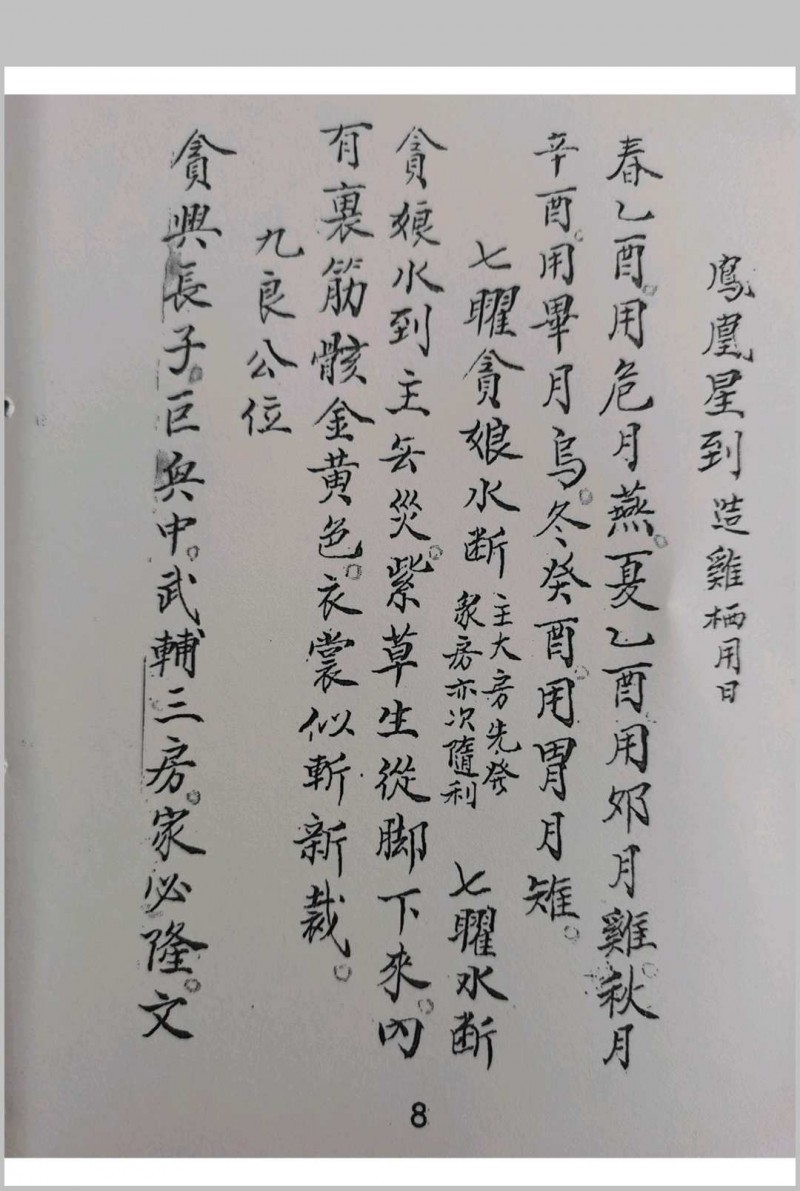 鳳凰星到 造雞栖用日
春乙酉。用危月燕。夏乙酉用昴月雞。秋月
辛酉。用畢月烏。冬癸酉。用胃月雉。
七曜貪娘水断 主大房先發 衆房亦次隨利 七曜水断
貪娘水到主無災。紫草生從脚下來。內
有裹筋骸金黃色。衣裳似斬新裁。
九良公位
貪興長子。巨興中。武輔三房。家必隆。文
8